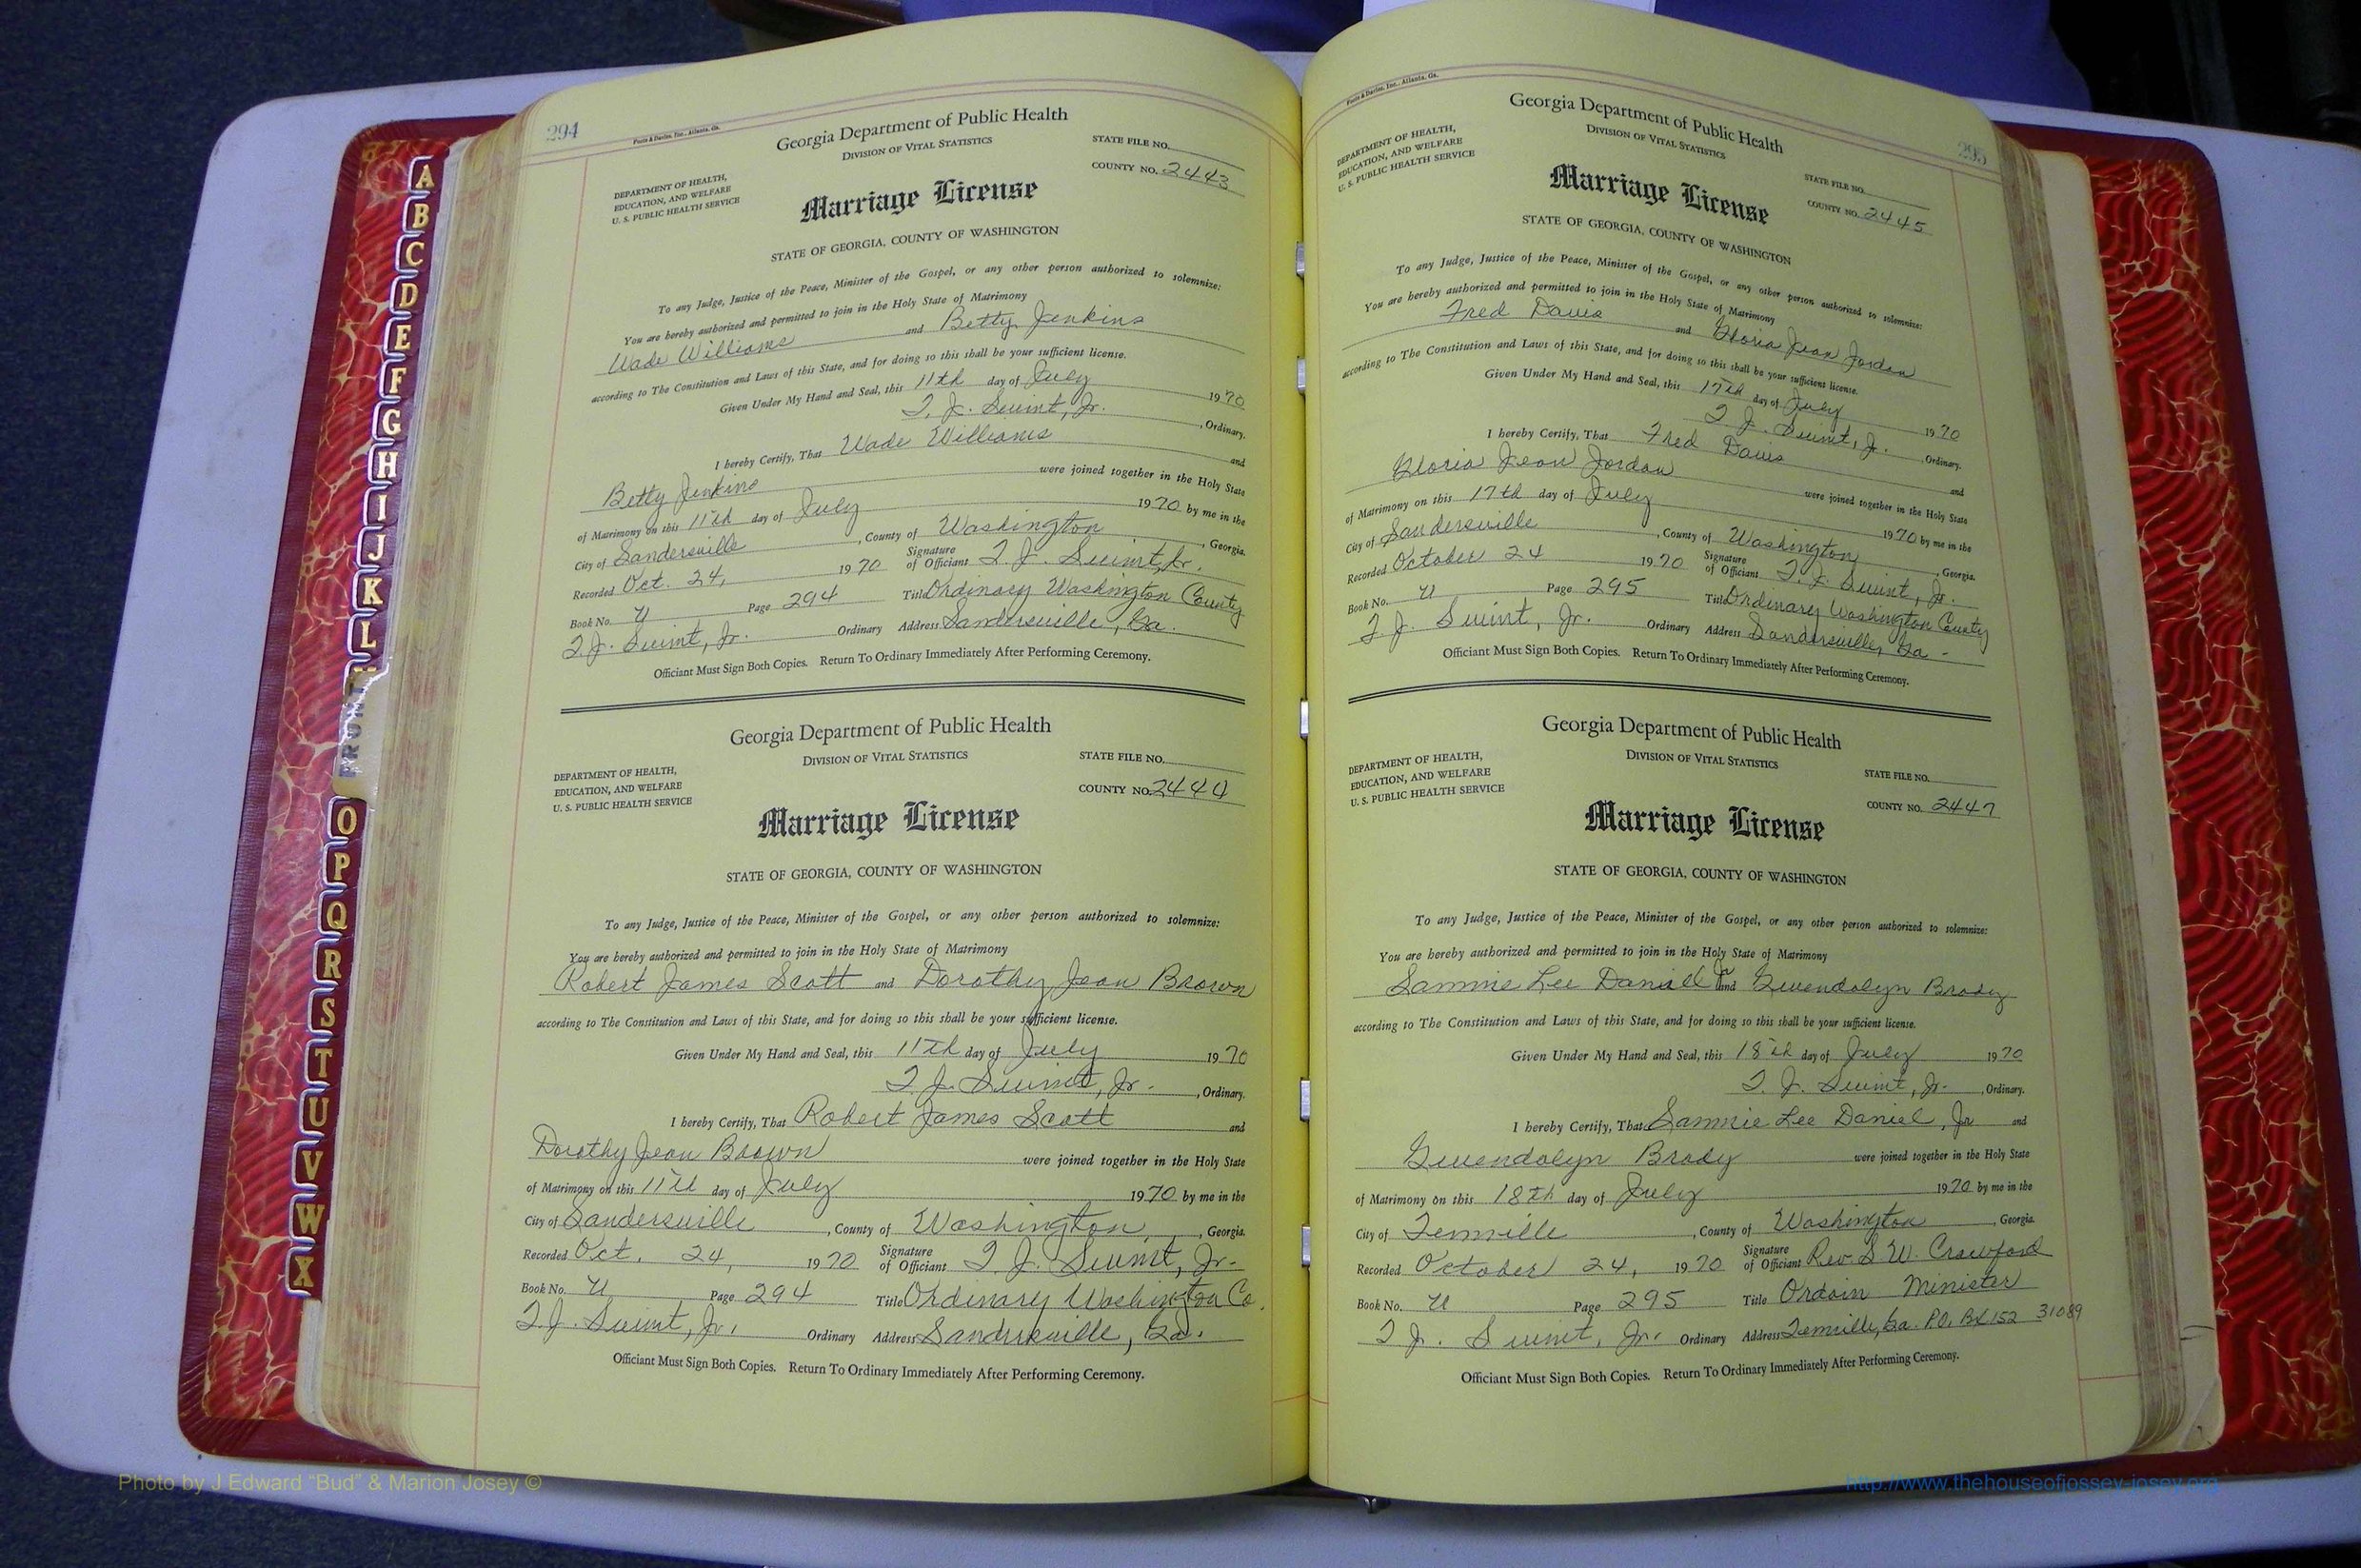 294
Foote & Davies, Inc., Atlanta, Ga.
Georgia Department of Public Health
DIVISION OF VITAL STATISTICS
STATE FILE NO.
COUNTY NO. 2443
DEPARTMENT OF HEALTH,
EDUCATION, AND WELFARE
U. S. PUBLIC HEALTH SERVICE
Marriage License
STATE OF GEORGIA, COUNTY OF WASHINGTON
To any Judge, Justice of the Peace, Minister of the Gospel, or any other person authorized to solemnize:
You are hereby authorized and permitted to join in the Holy State of Matrimony
Wade Williams and Betty Jenkins
according to The Constitution and Laws of this State, and for doing so this shall be your sufficient license.
Given Under My Hand and Seal, this 11th day of July 1970
T. J. Swint, Jr. , Ordinary.
I hereby Certify, That Wade Williams and
Betty Jenkins were joined together in the Holy State
of Matrimony on this 11th day of July 1970 by me in the
City of Sandersville , County of Washington , Georgia.
Recorded Oct. 24, 1970 Signature of Officiant T. J. Swint, Jr.
Book No. U Page 294 Title Ordinary Washington County
T. J. Swint, Jr. Ordinary Address Sandersville, Ga.
Officiant Must Sign Both Copies. Return To Ordinary Immediately After Performing Ceremony.
Georgia Department of Public Health
DIVISION OF VITAL STATISTICS
STATE FILE NO.
COUNTY NO. 2444
DEPARTMENT OF HEALTH,
EDUCATION, AND WELFARE
U. S. PUBLIC HEALTH SERVICE
Marriage License
STATE OF GEORGIA, COUNTY OF WASHINGTON
To any Judge, Justice of the Peace, Minister of the Gospel, or any other person authorized to solemnize:
You are hereby authorized and permitted to join in the Holy State of Matrimony
Robert James Scott and Dorothy Jean Brown
according to The Constitution and Laws of this State, and for doing so this shall be your sufficient license.
Given Under My Hand and Seal, this 11th day of July 1970
T. J. Swint, Jr. , Ordinary.
I hereby Certify, That Robert James Scott and
Dorothy Jean Brown were joined together in the Holy State
of Matrimony on this 11th day of July 1970 by me in the
City of Sandersville , County of Washington , Georgia.
Recorded Oct. 24, 1970 Signature of Officiant T. J. Swint, Jr.
Book No. U Page 294 Title Ordinary Washington Co.
T. J. Swint, Jr. Ordinary Address Sandersville, Ga.
Officiant Must Sign Both Copies. Return To Ordinary Immediately After Performing Ceremony.
295
Foote & Davies, Inc., Atlanta, Ga.
Georgia Department of Public Health
DIVISION OF VITAL STATISTICS
STATE FILE NO.
COUNTY NO. 2445
DEPARTMENT OF HEALTH,
EDUCATION, AND WELFARE
U. S. PUBLIC HEALTH SERVICE
Marriage License
STATE OF GEORGIA, COUNTY OF WASHINGTON
To any Judge, Justice of the Peace, Minister of the Gospel, or any other person authorized to solemnize:
You are hereby authorized and permitted to join in the Holy State of Matrimony
Fred Davis and Gloria Jean Jordan
according to The Constitution and Laws of this State, and for doing so this shall be your sufficient license.
Given Under My Hand and Seal, this 17th day of July 1970
T. J. Swint, Jr. , Ordinary.
I hereby Certify, That Fred Davis and
Gloria Jean Jordan were joined together in the Holy State
of Matrimony on this 17th day of July 1970 by me in the
City of Sandersville , County of Washington , Georgia.
Recorded October 24 1970 Signature of Officiant T. J. Swint, Jr.
Book No. U Page 295 Title Ordinary Washington County
T. J. Swint, Jr. Ordinary Address Sandersville, Ga.
Officiant Must Sign Both Copies. Return To Ordinary Immediately After Performing Ceremony.
Georgia Department of Public Health
DIVISION OF VITAL STATISTICS
STATE FILE NO.
COUNTY NO. 2447
DEPARTMENT OF HEALTH,
EDUCATION, AND WELFARE
U. S. PUBLIC HEALTH SERVICE
Marriage License
STATE OF GEORGIA, COUNTY OF WASHINGTON
To any Judge, Justice of the Peace, Minister of the Gospel, or any other person authorized to solemnize:
You are hereby authorized and permitted to join in the Holy State of Matrimony
Sammie Lee Daniell Jr and Gwendolyn Brady
according to The Constitution and Laws of this State, and for doing so this shall be your sufficient license.
Given Under My Hand and Seal, this 18th day of July 1970
T. J. Swint, Jr. , Ordinary.
I hereby Certify, That Sammie Lee Daniel, Jr and
Gwendolyn Brady were joined together in the Holy State
of Matrimony on this 18th day of July 1970 by me in the
City of Tennille , County of Washington , Georgia.
Recorded October 24, 1970 Signature of Officiant Rev. S. W. Crawford
Book No. U Page 295 Title Ordain Minister
T. J. Swint, Jr. Ordinary Address Tennille, Ga. P.O. Bx 152 31089
Officiant Must Sign Both Copies. Return To Ordinary Immediately After Performing Ceremony.
A
B
C
D
E
F
G
H
I
J
K
L
FRONT
O
P
Q
R
S
T
U
V
W
X
Photo by J Edward "Bud" & Marion Josey ©
http://www.thehouseofjossey-josey.org